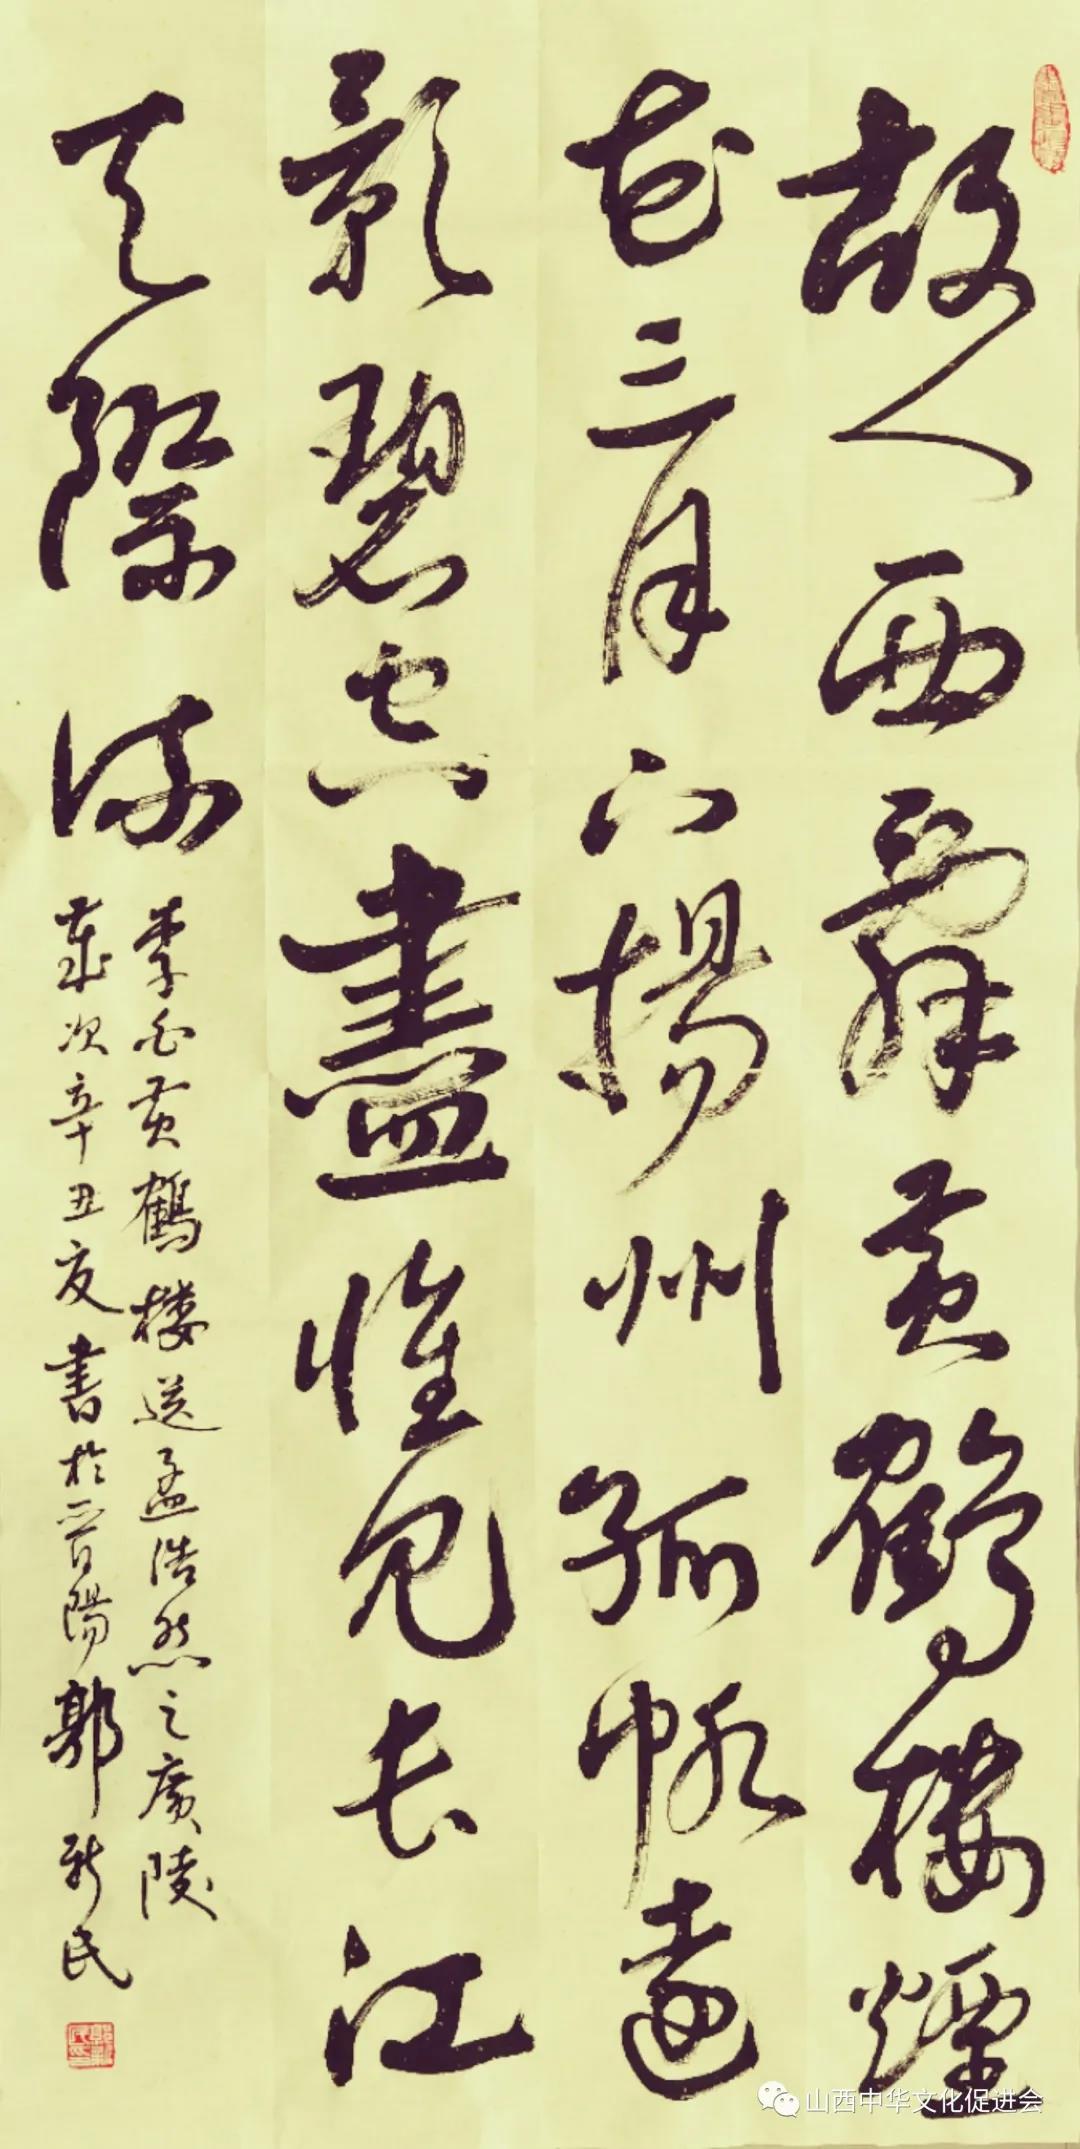 故人西辞黄鹤楼煙
花三月下揚州孤帆遠
影碧空盡惟见长江
天際流
李白黄鶴楼送孟浩然之廣陵
歲次辛丑夏書於晋陽郭新民
山西中华文化促进会